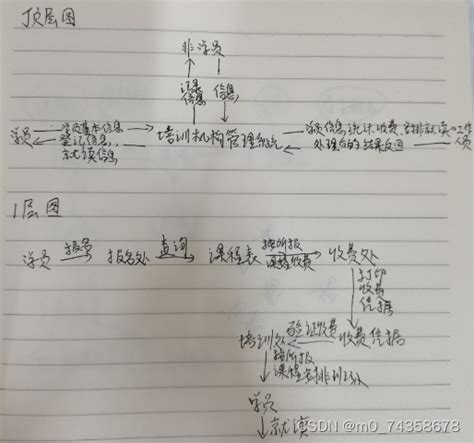 顶层图
非学员
记录 信息
信息
学员 学员基本信息 培训机构管理系统 学员信息,统计,收费,安排就读 工作人员
登记信息, 处理后的结果反回
就读信息
1层图
学员 报名 报名处 查询 课程表 按所报 收费处
课程收费
打印
收费
凭据
培训处 验证收费 收费凭据
按所报
课程安排
学员
就读
CSDN @m0_74358678